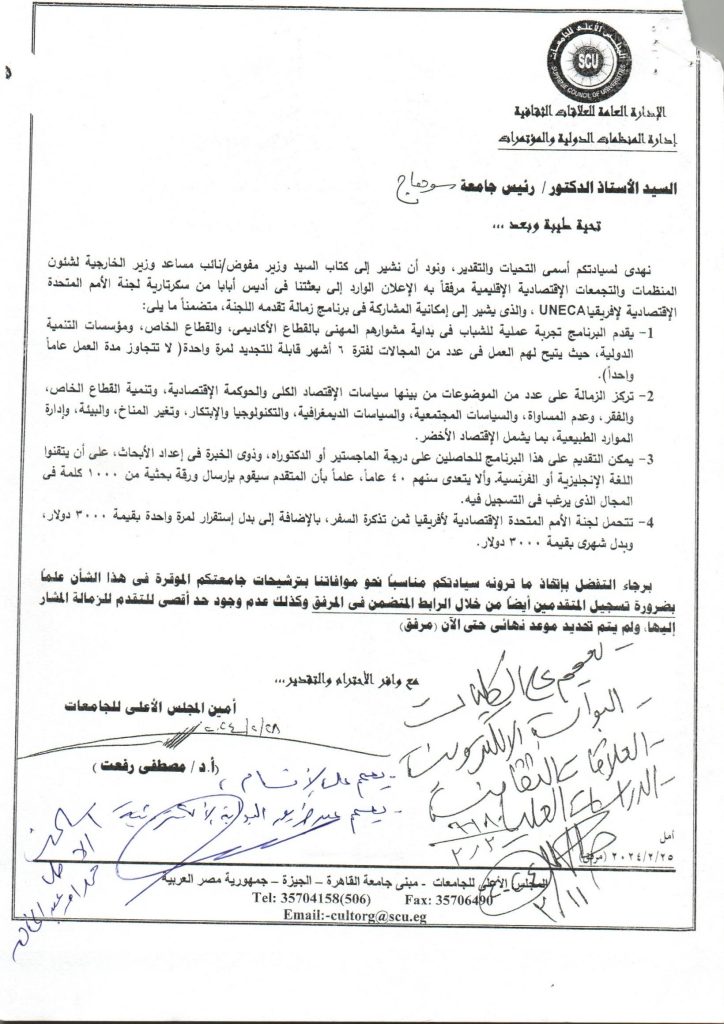 المجلس الأعلى للجامعات
SCU
SUPREME COUNCIL OF UNIVERSITIES
الإدارة العامة للعلاقات الثقافية
إدارة المنظمات الدولية والمؤتمرات
السيد الأستاذ الدكتور/ رئيس جامعة سوهاج
تحية طيبة وبعد ...
نهدى لسيادتكم أسمى التحيات والتقدير، ونود أن نشير إلى كتاب السيد وزير مفوض/نائب مساعد وزير الخارجية لشئون
المنظمات والتجمعات الإقتصادية الإقليمية مرفقاً به الإعلان الوارد إلى بعثتنا فى أديس أبابا من سكرتارية لجنة الأمم المتحدة
الإقتصادية لإفريقيا UNECA ، والذى يشير إلى إمكانية المشاركة فى برنامج زمالة تقدمه اللجنة، متضمناً ما يلى:
1- يقدم البرنامج تجربة عملية للشباب فى بداية مشوارهم المهنى بالقطاع الأكاديمى، والقطاع الخاص، ومؤسسات التنمية
الدولية، حيث يتيح لهم العمل فى عدد من المجالات لفترة ٦ أشهر قابلة للتجديد لمرة واحدة( لا تتجاوز مدة العمل عاماً
واحداً).
2- تركز الزمالة على عدد من الموضوعات من بينها سياسات الإقتصاد الكلى والحوكمة الإقتصادية، وتنمية القطاع الخاص،
والفقر، وعدم المساواة، والسياسات المجتمعية، والسياسات الديمغرافية، والتكنولوجيا والإبتكار، وتغير المناخ، والبيئة، وإدارة
الموارد الطبيعية، بما يشمل الإقتصاد الأخضر.
3- يمكن التقديم على هذا البرنامج للحاصلين على درجة الماجستير أو الدكتوراه، وذوى الخبرة فى إعداد الأبحاث، على أن يتقنوا
اللغة الإنجليزية أو الفرنسية، وألا يتعدى سنهم ٤٠ عاماً، علماً بأن المتقدم سيقوم بإرسال ورقة بحثية من ١٠٠٠ كلمة فى
المجال الذى يرغب فى التسجيل فيه.
4- تتحمل لجنة الأمم المتحدة الإقتصادية لأفريقيا ثمن تذكرة السفر، بالإضافة إلى بدل إستقرار لمرة واحدة بقيمة ٣٠٠٠ دولار،
وبدل شهرى بقيمة ٣٠٠٠ دولار.
برجاء التفضل بإتخاذ ما ترونه سيادتكم مناسباً نحو موافاتنا بترشيحات جامعتكم الموقرة فى هذا الشأن علماً
بضرورة تسجيل المتقدمين أيضاً من خلال الرابط المتضمن فى المرفق وكذلك عدم وجود حد أقصى للتقدم للزمالة المشار
إليها، ولم يتم تحديد موعد نهائى حتى الآن (مرفق)
مع وافر الأحترام والتقدير،،،
أمين المجلس الأعلى للجامعات
(أ.د/ مصطفى رفعت)
- تعميم على الكليات
البوابة الإلكترونية
- العلاقات الثقافية
- الدراسات العليا
- يعمم على الأقسام
- يعمم عن طريق البوابة الإلكترونية
أمل
٢٠٢٤/٢/٢٥ (مرفق)
المجلس الأعلى للجامعات - مبنى جامعة القاهرة – الجيزة – جمهورية مصر العربية
Tel: 35704158(506) Fax: 35706490
Email:-cultorg@scu.eg